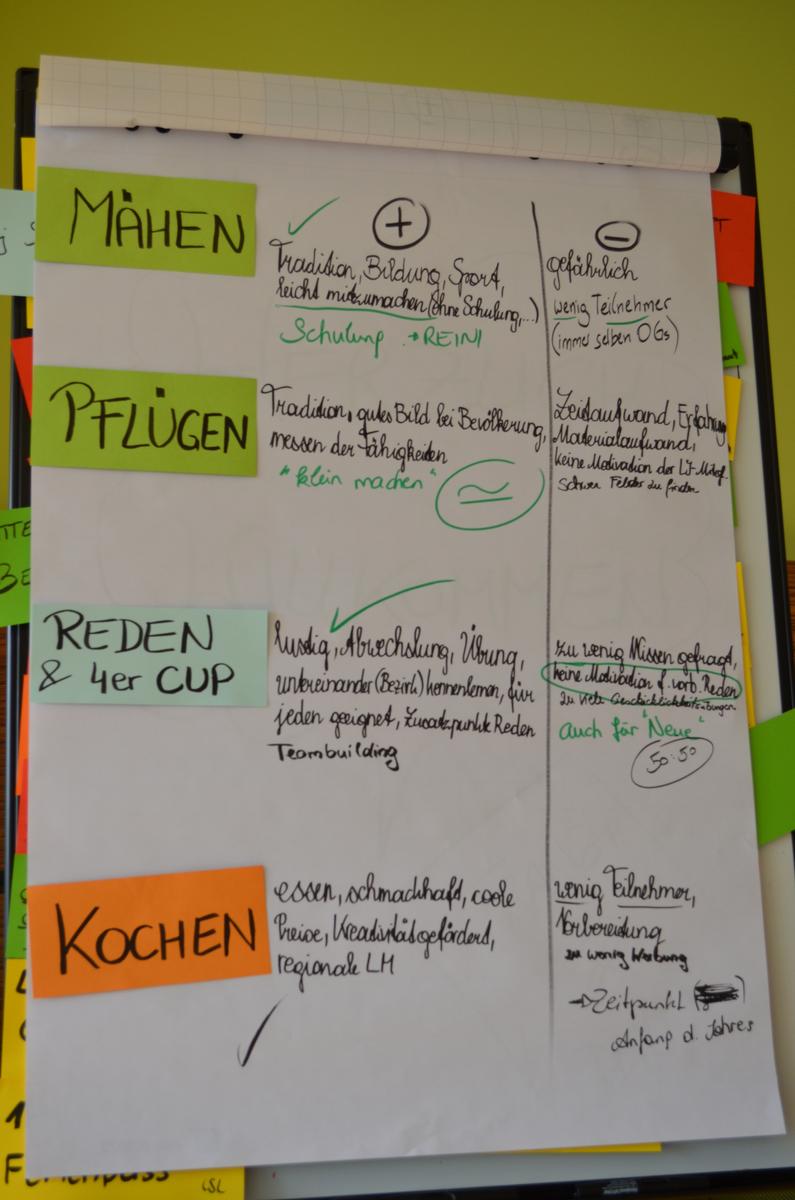 MÄHEN
+
Tradition, Bildung, Sport,
leicht mitzumachen (ohne Schulung,...)
Schulung → REINI
−
gefährlich
wenig Teilnehmer
(immer selben OGs)
PFLÜGEN
Tradition, gutes Bild bei Bevölkerung,
messen der Fähigkeiten
"klein machen"
≃
Zeitaufwand, Erfahrung
Materialaufwand,
keine Motivation der LJ-Mitgl.
Schwer Felder zu finden
REDEN
& 4er CUP
lustig, Abwechslung, Übung,
untereinander (Bezirk) kennenlernen, für
jeden geeignet, Zusatzpunkte Reden
Teambuilding
zu wenig Wissen gefragt,
keine Motivation f. vorb. Reden
zu viele Geschicklichkeitsübungen
auch für "Neue"
50:50
KOCHEN
essen, schmackhaft, coole
Preise, Kreativität gefördert,
regionale LM
wenig Teilnehmer,
Vorbereitung
zu wenig Werbung
→ Zeitpunkt
Anfang d. Jahres
LSL